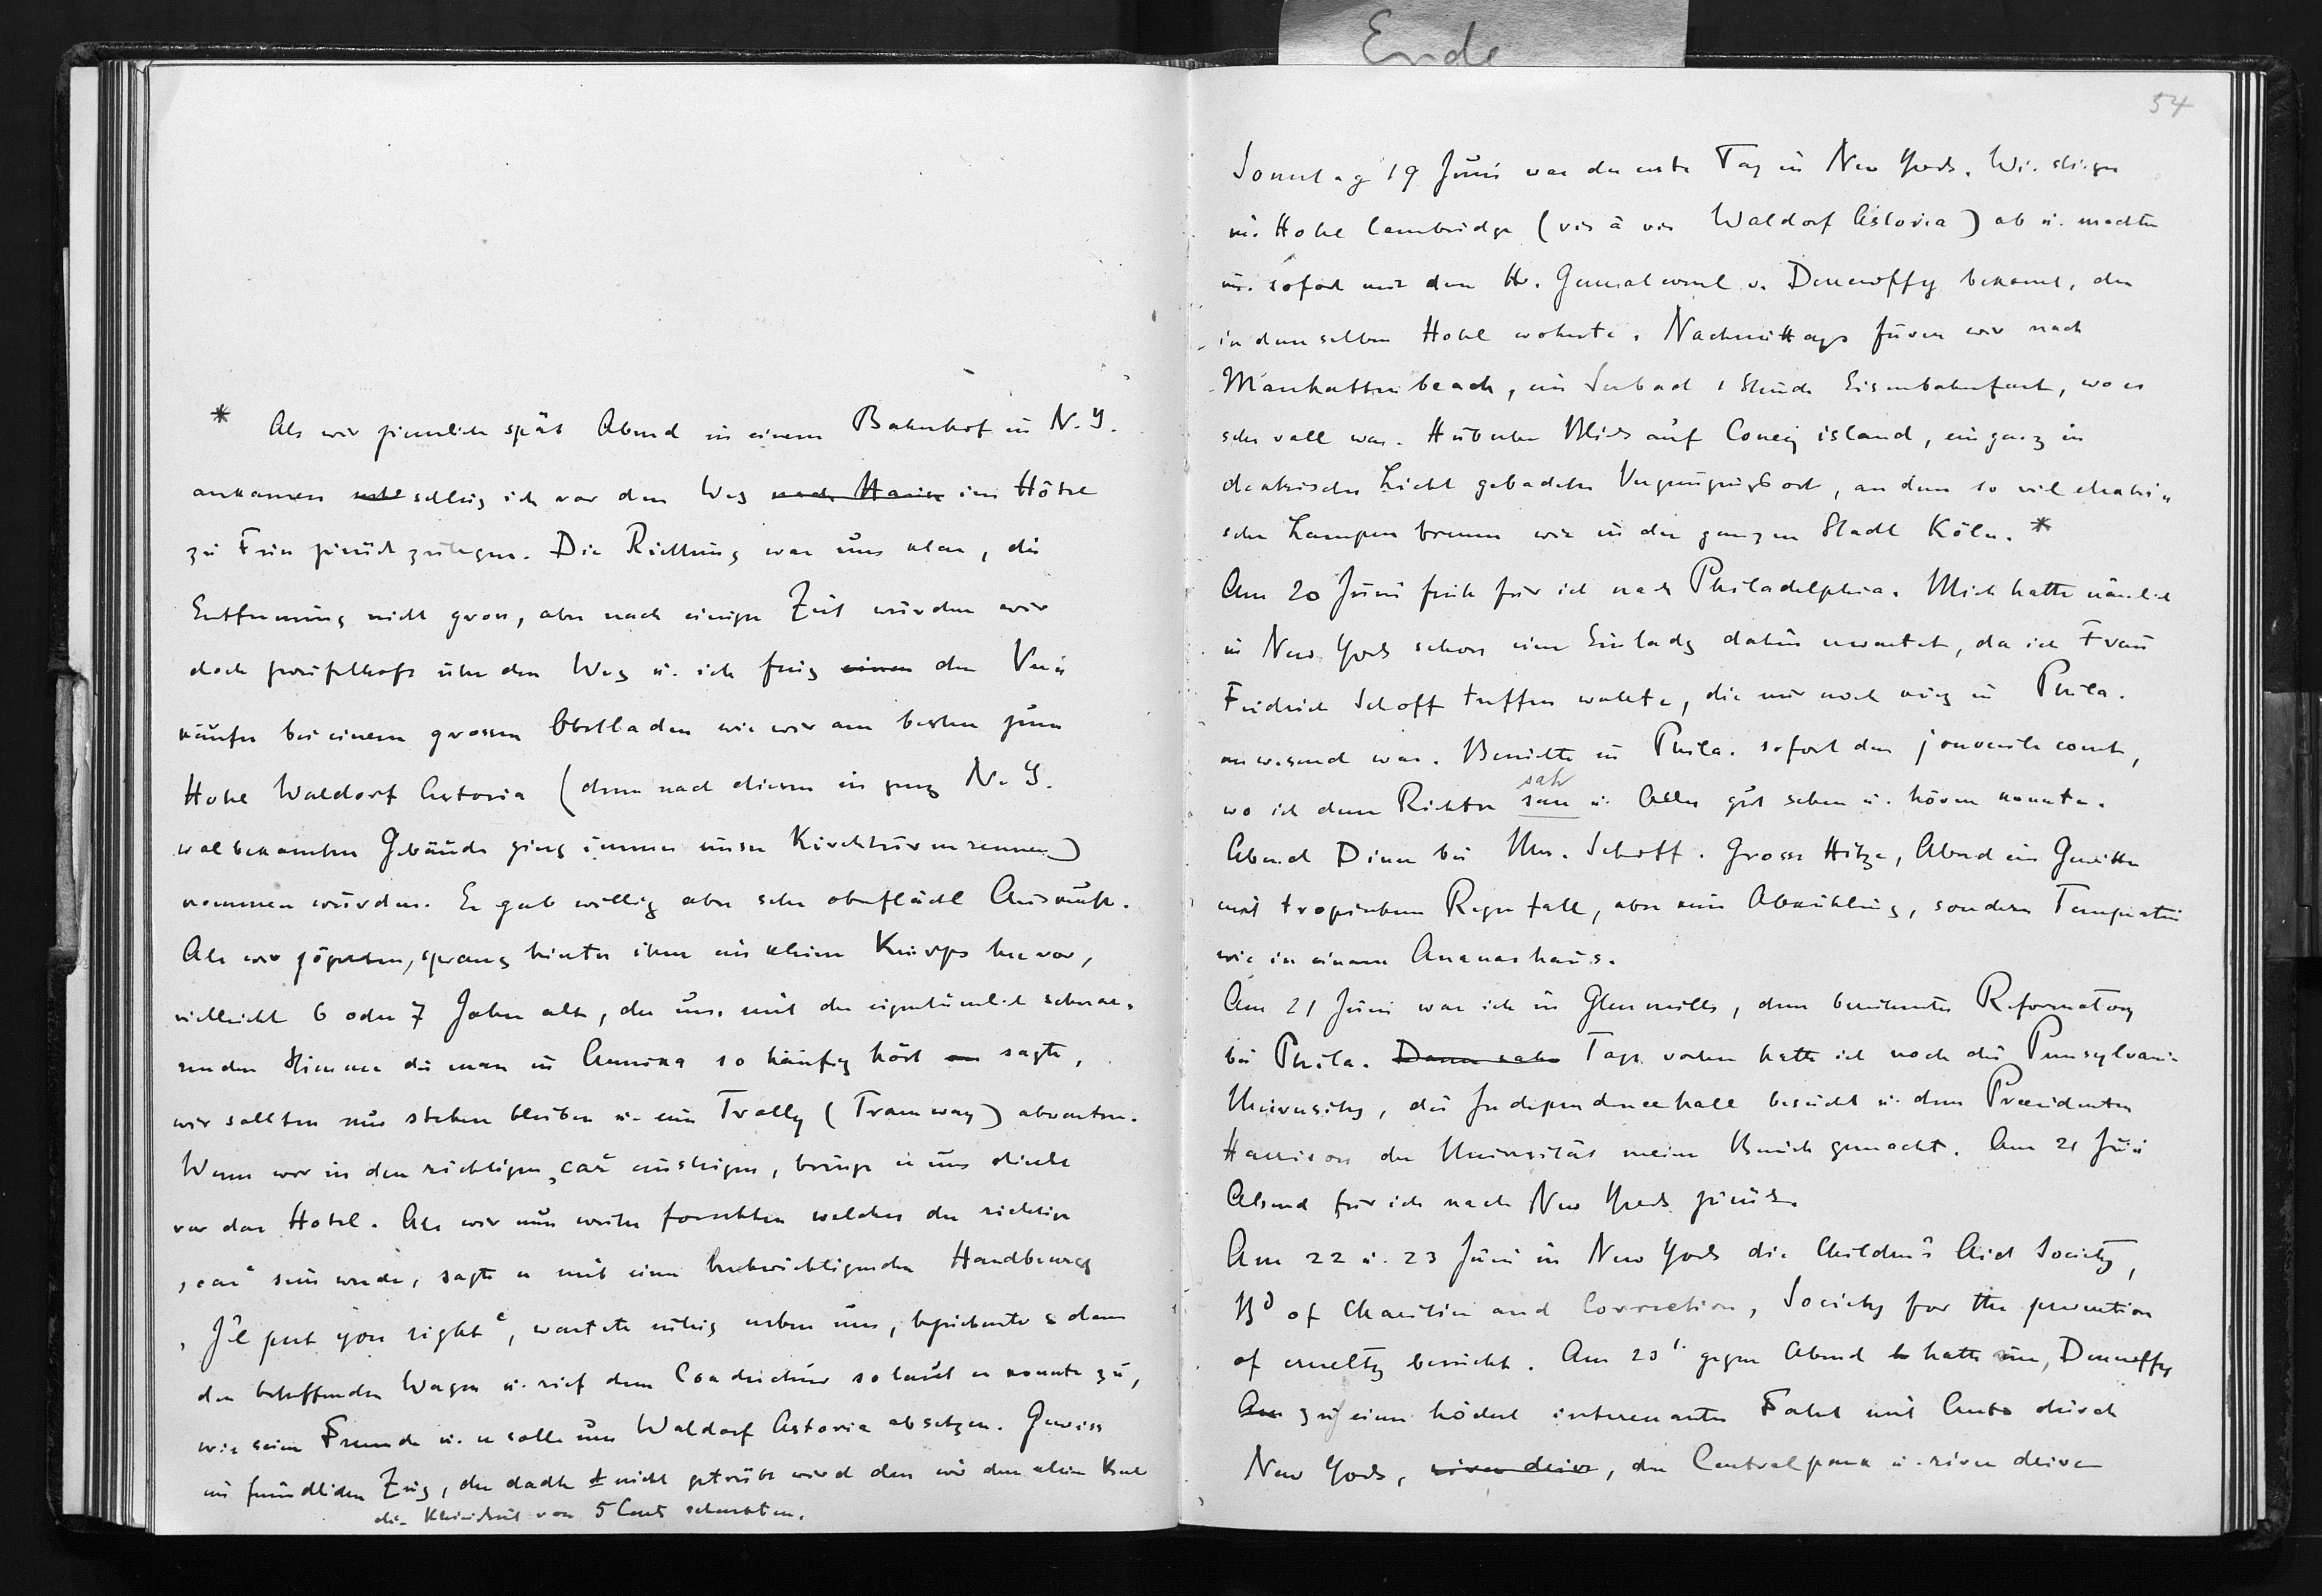 Ende
* Als wir ziemlich spät Abend in einem Bahnhof in N. Y.
ankamen schlug ich vor den Weg nach Hause ins Hôtel
zu Fuss zurückzulegen. Die Richtung war uns klar, die
Entfernung nicht gross, aber nach einiger Zeit wurden wir
doch zweifelhaft über den Weg u. ich frug einen den Ver
käufer bei einem grossen Obstladen wie wir am besten zum
Hotel Waldorf Astoria (denn nach diesem in ganz N. Y.
wolbekannten Gebäude ging immer unser Kirchturmrennen)
kommen würden. Er gab willig aber sehr oberflächl Auskunft.
Als wir zögerten, sprang hinter ihm ein kleiner Knirps hervor,
vielleicht 6 oder 7 Jahre alt, der uns mit der eigentümlich schnar-
renden Stimme die man in Amerika so häufig hört sagte,
wir sollten nur stehen bleiben u. ein Trolly (Tramway) abwarten.
Wenn wir in den richtigen „car" einstiegen, bringe er uns direkt
vor das Hotel. Als wir nun weiter forschten welches der richtige
„car" sein werde, sagte er mit einer beschwichtigenden Handbeweg
„I'l put you right", wartete ruhig neben uns, bezeichnete dann
den betreffenden Wagen u. rief dem Conducteur so laut er konnte zu,
wir seien Fremde u. er solle uns Waldorf Astoria absetzen. Gewiss
ein freundlicher Zug, der dadch nicht getrübt wird dass wir dem kleinen Kerl
die Kleinigkeit von 5 Cents schenkten.
54
Sonntag 19 Juni war der erste Tag in New York. Wir stiegen
im Hotel Cambridge (vis à vis Waldorf Astoria) ab u. machten
uns sofort mit dem H. Generalconsul v. Denenoffy bekannt, der
in demselben Hotel wohnte. Nachmittags furen wir nach
Manhatten beach, ein Seebad 1 Stunde Eisenbahnfart, wo es
sehr voll war. Hübscher Blick auf Coney island, ein ganz in
elektrisches Licht gebadeter Vergnügungsort, an dem so viel elektri
sche Lampen brennen wie in der ganzen Stadt Köln. *
Am 20 Juni früh fur ich nach Philadelphia. Mich hatte nämlich
in New York schon eine Einladg dahin erwartet, da ich Frau
Friedrich Schoff treffen wollte, die nur noch kurz in Phila.
anwesend war. Besuchte in Phila. sofort den jouvenile court,
sah
wo ich dem Richter sass u. Alles gut sehen u. hören konnte.
Abend Diner bei Mrs. Schoff. Grosse Hitze, Abend ein Gewitter
mit tropischem Regenfall, aber keine Abkühlung, sondern Temperatur
wie in einem Ananashaus.
Am 21 Juni war ich in Glenmills, dem berühmten Reformatory
bei Phila. Dann sahe Tags vorher hatte ich noch die Pensylvania
University, die Independencehall besucht u. dem Præsidenten
Harrison der Universität meinen Besuch gemacht. Am 21 Juni
Abend fur ich nach New York zurück.
Am 22 u. 23 Juni in New York die Children's Aid Society,
Bd of Charities and Correction, Society for the prevention
of cruelty besucht. Am 23t. gegen Abend hatte uns, Denenoffy
zu einer höchst interessanten Fahrt mit Auto durch
New York, river drive, den Centralpark u. river drive